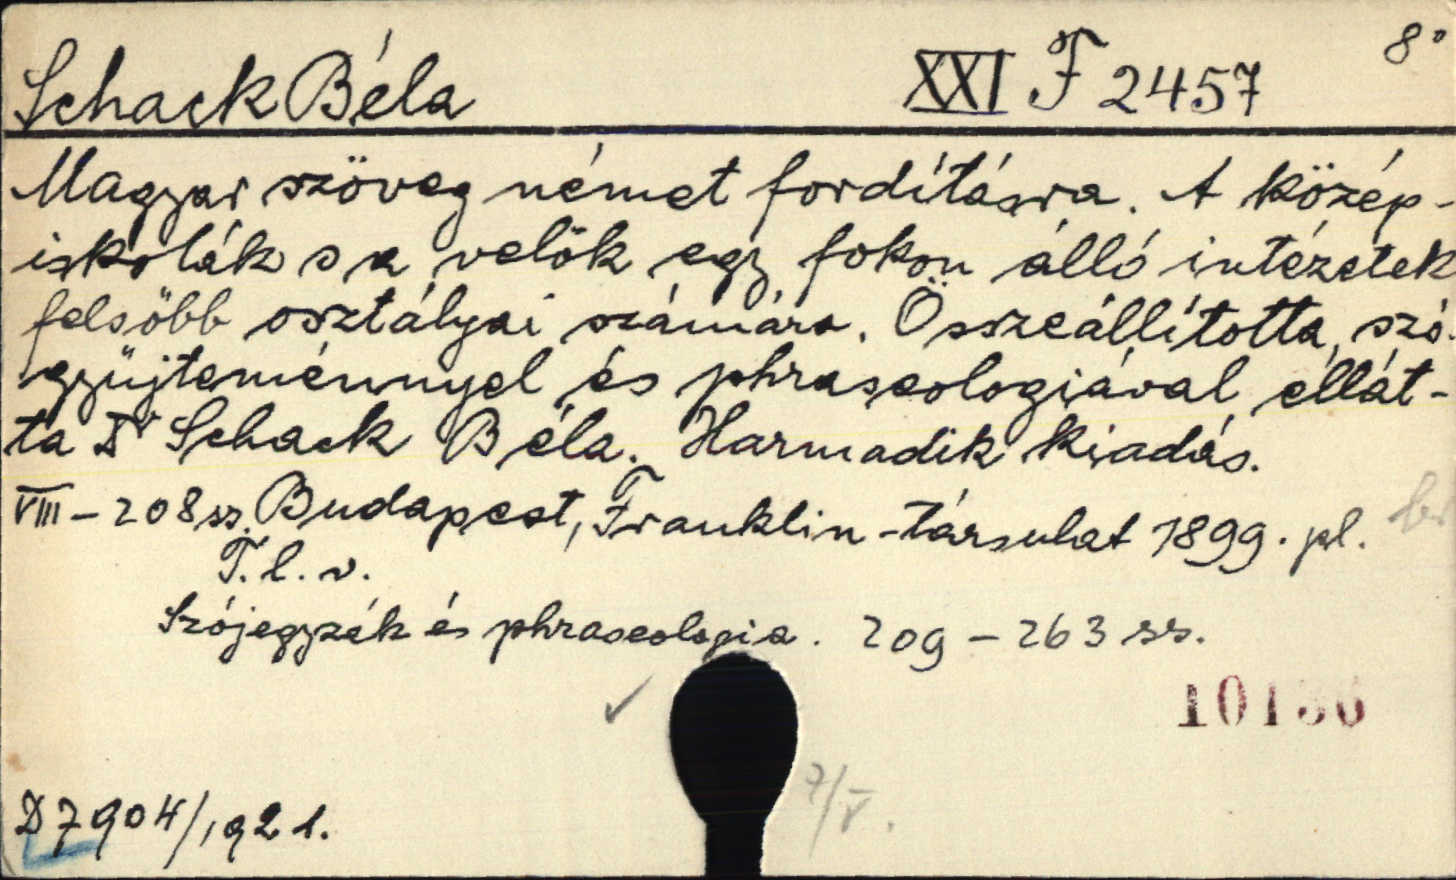 Schack Béla XXI F 2457 8°
Magyar szöveg német fordításra. A közép-
iskolák s a velök egy fokon álló intézetek
felsőbb osztályai számára. Összeállította, szó-
gyüjteménnyel és phraseologiával ellát-
ta Dr Schack Béla. Harmadik kiadás.
VIII – 208 ss. Budapest, Franklin-társulat 1899. pl.
T. l. v.
Szójegyzék és phraseologia. 209 – 263 ss.
10136
7/V.
D 7904/1921.